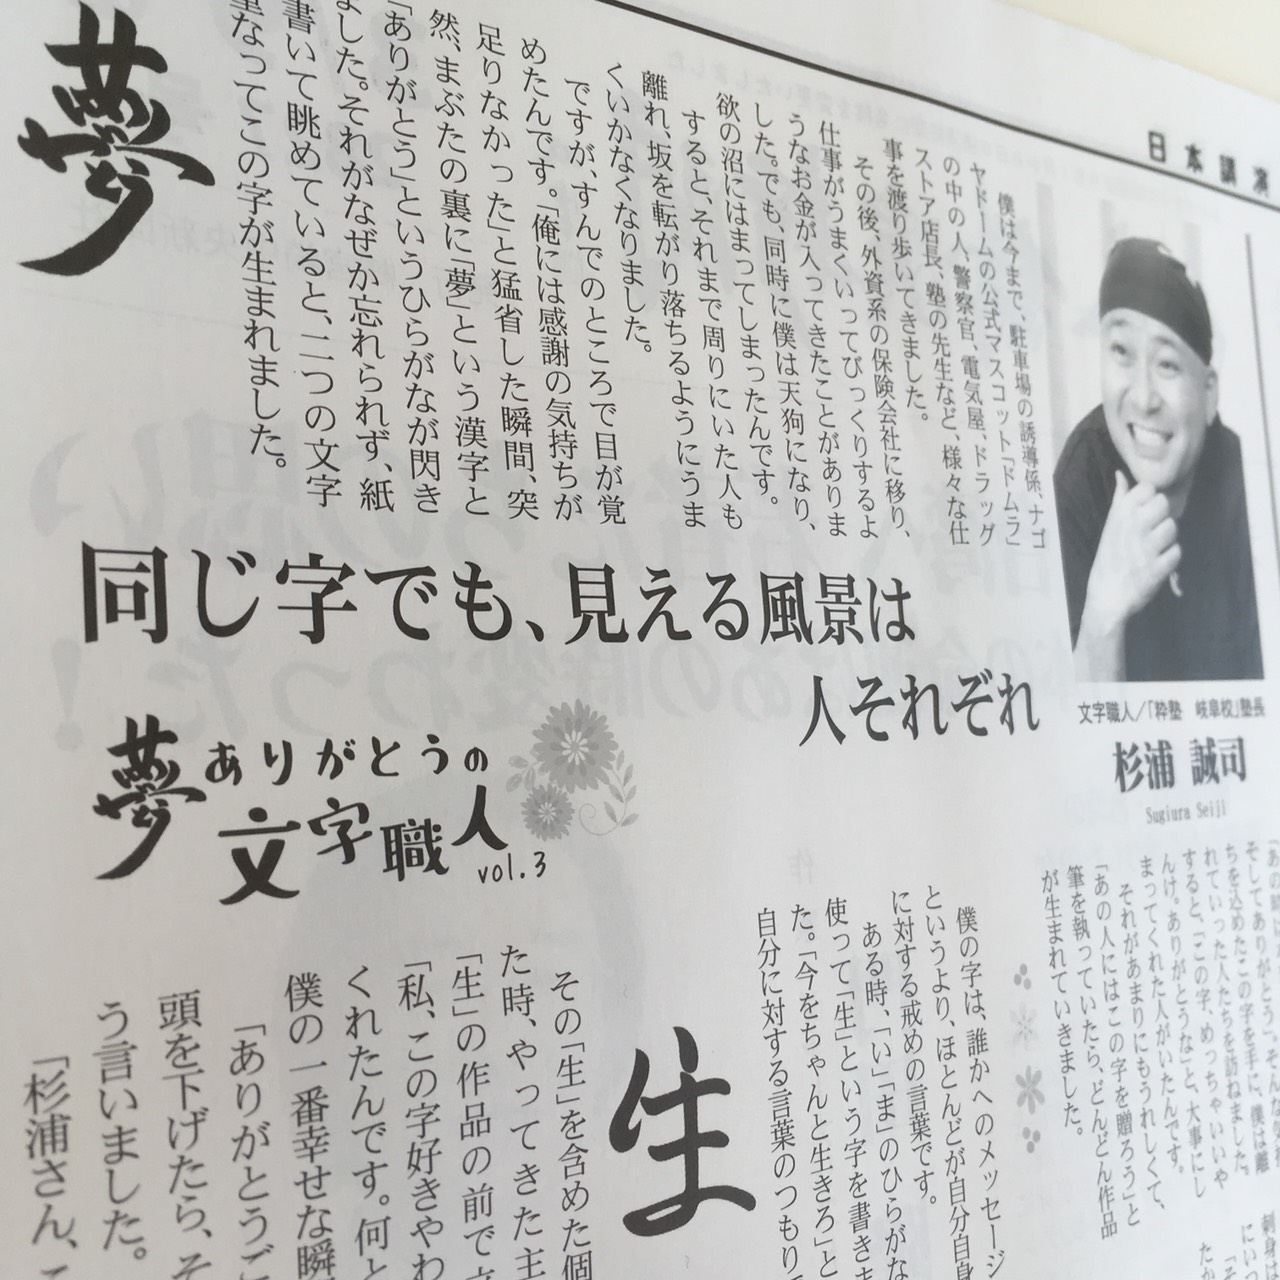 日本講演
文字職人/「粋塾　岐阜校」塾長
杉浦 誠司
Sugiura Seiji
僕は今まで、駐車場の誘導係、ナゴ
ヤドームの公式マスコット「ドムラ」
の中の人、警察官、電気屋、ドラッグ
ストア店長、塾の先生など、様々な仕
事を渡り歩いてきました。
その後、外資系の保険会社に移り、
仕事がうまくいってびっくりするよ
うなお金が入ってきたことがありま
した。でも、同時に僕は天狗になり、
欲の沼にはまってしまったんです。
すると、それまで周りにいた人も
離れ、坂を転がり落ちるようにうま
くいかなくなりました。
ですが、すんでのところで目が覚
めたんです。「俺には感謝の気持ちが
足りなかった」と猛省した瞬間、突
然、まぶたの裏に「夢」という漢字と
「ありがとう」というひらがなが閃き
ました。それがなぜか忘れられず、紙
書いて眺めていると、二つの文字
重なってこの字が生まれました。
夢
同じ字でも、見える風景は
人それぞれ
夢ありがとうの
文字職人
vol.3
そしてありがとう」。そんな
ちを込めたこの字を手に、僕は離
れていった人たちを訪ねました。
すると、「この字、めっちゃいいや
んけ。ありがとうな」と、大事にし
まってくれた人がいたんです。
それがあまりにもうれしくて、
「あの人にはこの字を贈ろう」と
筆を執っていたら、どんどん作品
が生まれていきました。
僕の字は、誰かへのメッセージ
というより、ほとんどが自分自身
に対する戒めの言葉です。
ある時、「い」「ま」のひらがな
使って「生」という字を書きま
た。「今をちゃんと生きろ」と
自分に対する言葉のつもり
生
その「生」を含めた個
た時、やってきた主
「生」の作品の前で
「私、この字好きやわ
くれたんです。何と
僕の一番幸せな瞬
「ありがとうご
頭を下げたら、そ
う言いました。
「杉浦さん、こ